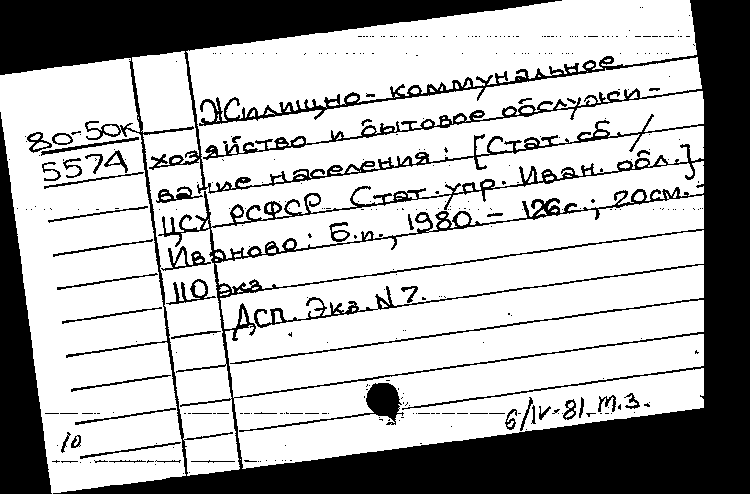 Жилищно-коммунальное
80-50к
5574
хозяйство и бытовое обслужи-
вание населения: [Стат. сб. /
ЦСУ РСФСР. Стат. упр. Иван. обл.].
Иваново: Б.и., 1980. - 126с.; 20см. -
110 экз.
Дсп. Экз. N 7.
6/IV-81. т.з.
10